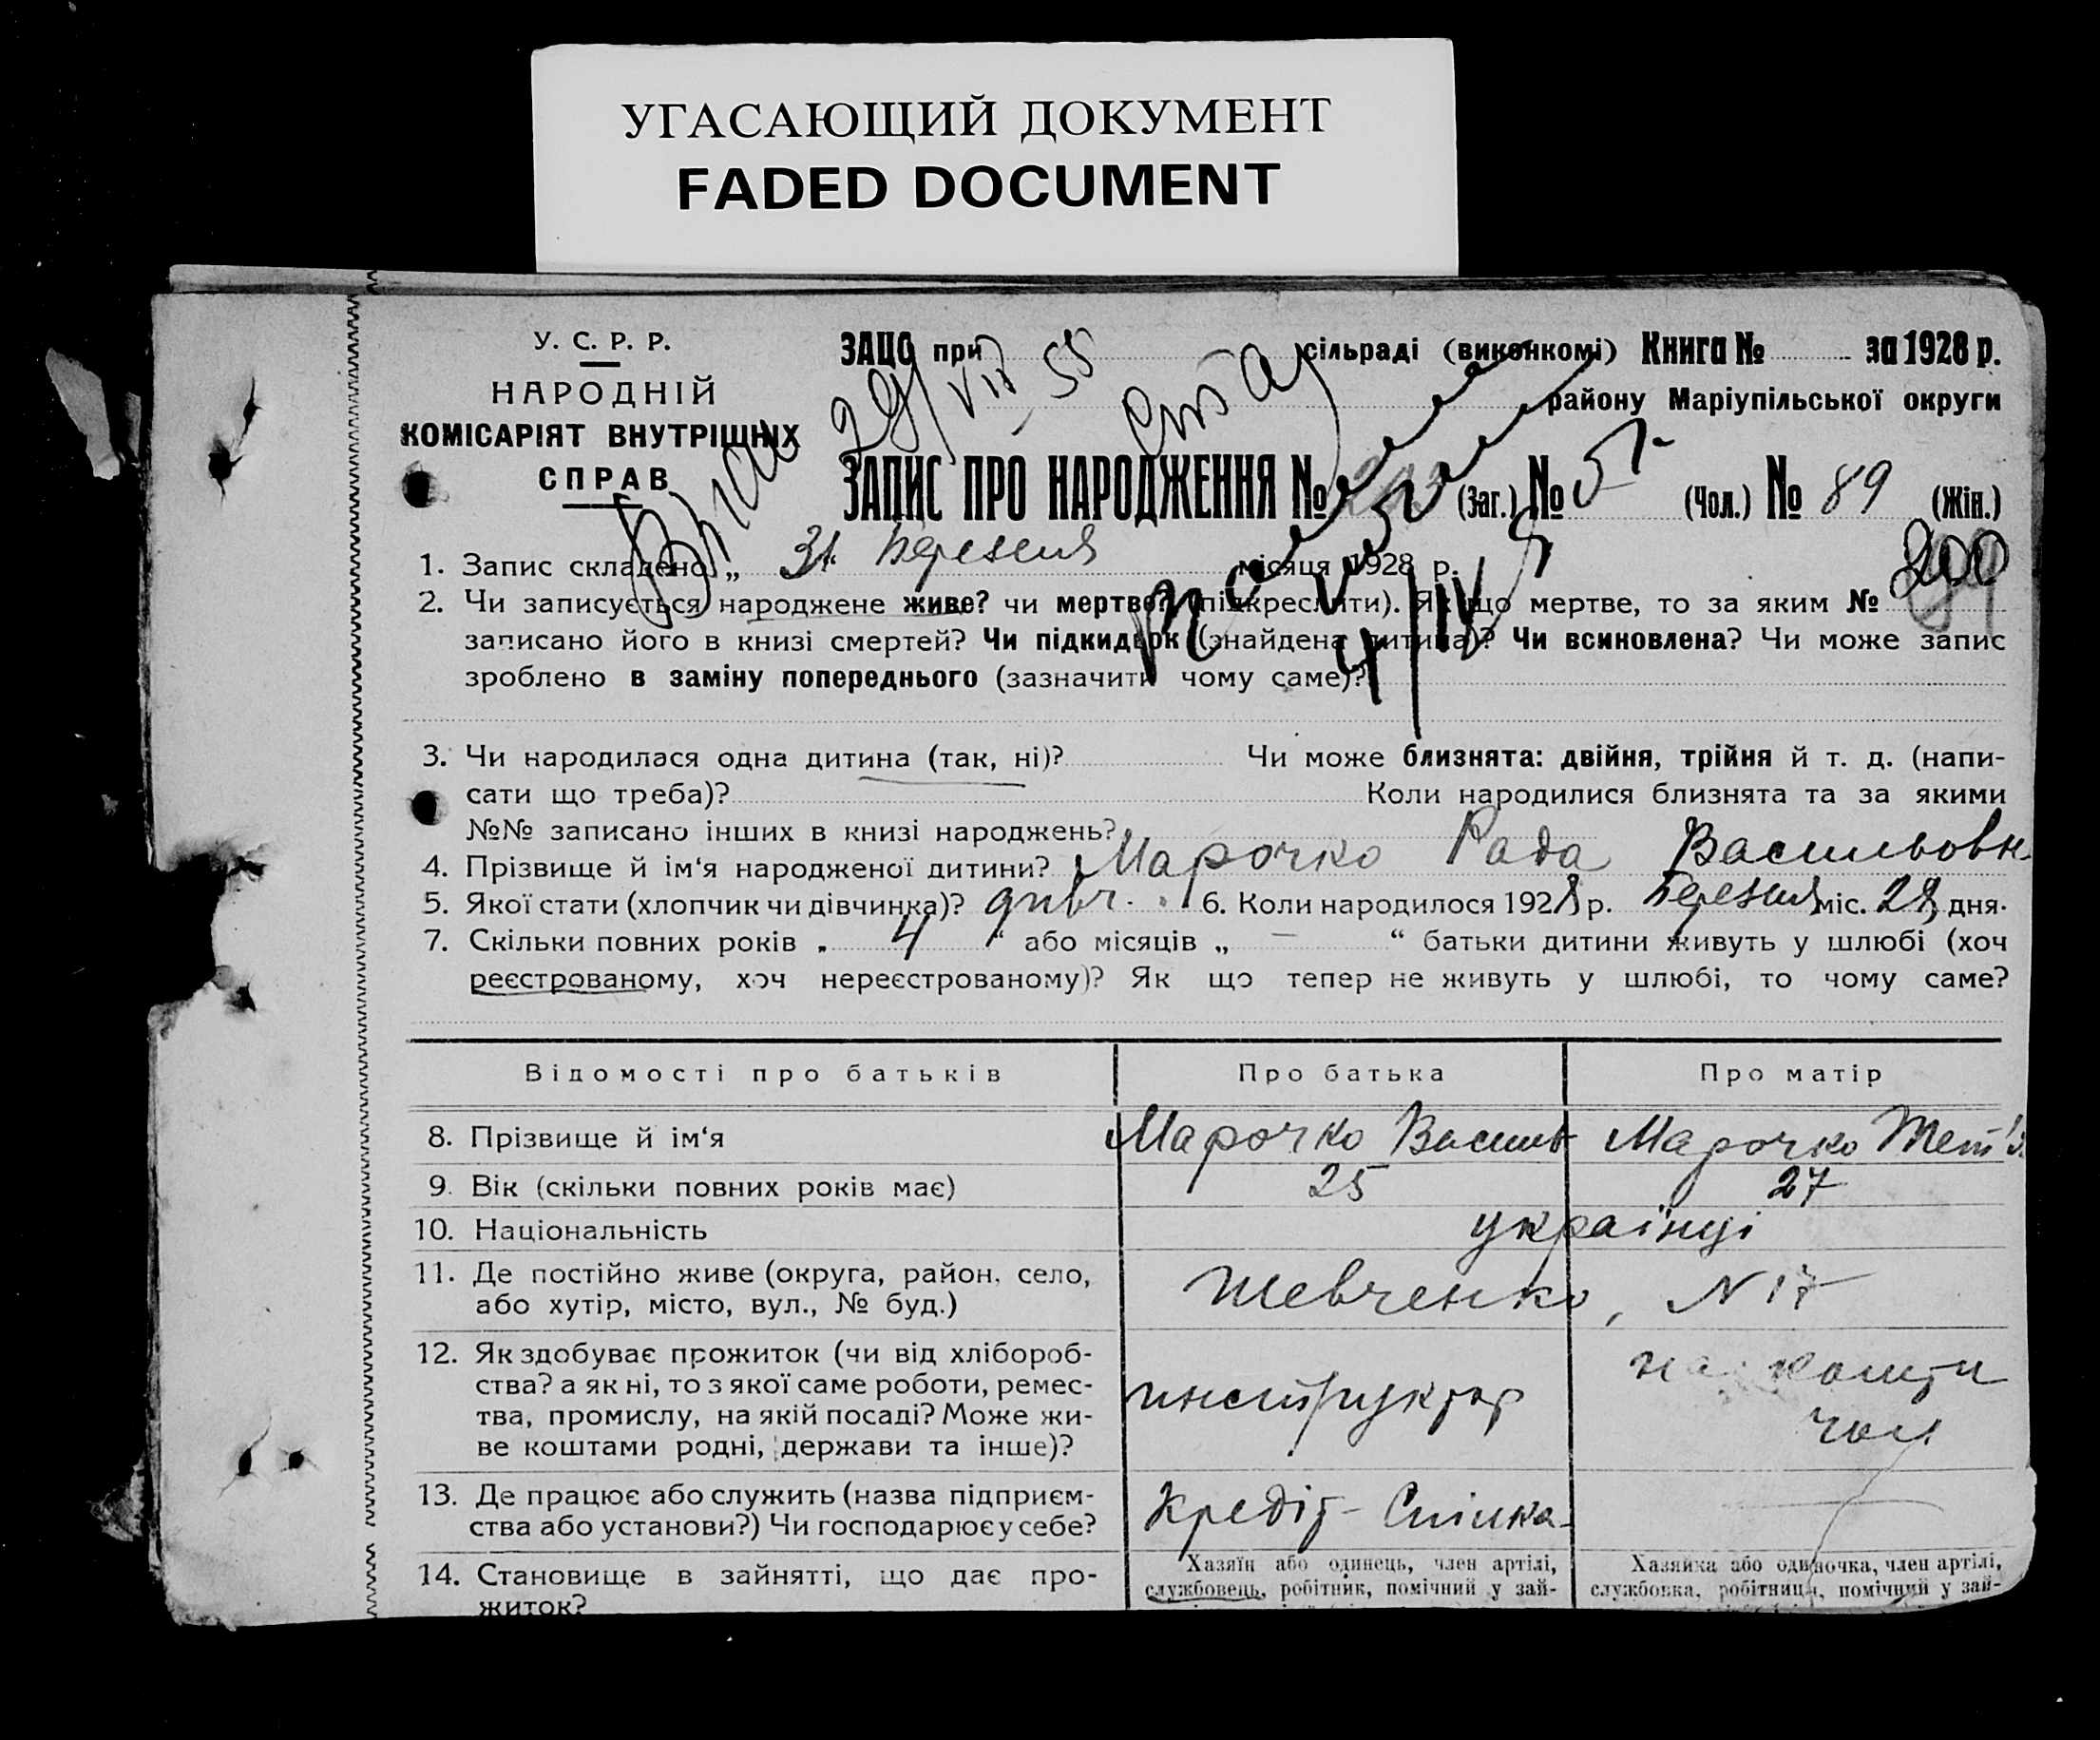 УГАСАЮЩИЙ ДОКУМЕНТ
FADED DOCUMENT
У. С. Р. Р.
НАРОДНІЙ
КОМІСАРІЯТ ВНУТРІШНІХ
СПРАВ
ЗАЦС при сільраді (виконкомі) Книга № за 1928 р.
29/VII 55
району Маріупільської округи
ЗАПИС ПРО НАРОДЖЕННЯ № (Заг.) № (Чол.) № 89 (Жін.)
1. Запис складено „ 31 " Березеня місяця 1928 р.
200
2. Чи записується народжене живе? чи мертве? (підкреслити). Як що мертве, то за яким №
записано його в книзі смертей? Чи підкидьок (знайдена дитина)? Чи всиновлена? Чи може запис
зроблено в заміну попереднього (зазначити чому саме)?
4/IV
3. Чи народилася одна дитина (так, ні)? Чи може близнята: двійня, трійня й т. д. (напи-
сати що треба)? Коли народилися близнята та за якими
№№ записано інших в книзі народжень?
4. Прізвище й ім'я народженої дитини? Марочко Рада Васильовн
5. Якої стати (хлопчик чи дівчинка)? дивч. 6. Коли народилося 1928 р. Березеня міс. 28 дня.
7. Скільки повних років „ 4 “ або місяців „ — “ батьки дитини живуть у шлюбі (хоч
реєстрованому, хоч нереєстрованому)? Як що тепер не живуть у шлюбі, то чому саме?
Відомості про батьків Про батька Про матір
8. Прізвище й ім'я Марочко Василь Марочко Тет
9. Вік (скільки повних років має) 25 27
10. Національність українці
11. Де постійно живе (округа, район, село,
або хутір, місто, вул., № буд.) Шевченко, N 17
12. Як здобуває прожиток (чи від хлібороб-
ства? а як ні, то з якої саме роботи, ремес-
тва, промислу, на якій посаді? Може жи-
ве коштами родні, держави та інше)?
инструктор
на кошти
чол
13. Де працює або служить (назва підприєм-
ства або установи?) Чи господарює у себе?
Кредіт-Спілка
14. Становище в зайнятті, що дає про-
житок?
Хазяїн або одинець, член артілі,
службовець, робітник, помічний у зай-
Хазяйка або одиночка, член артілі,
службовка, робітниця, помічний у зай-